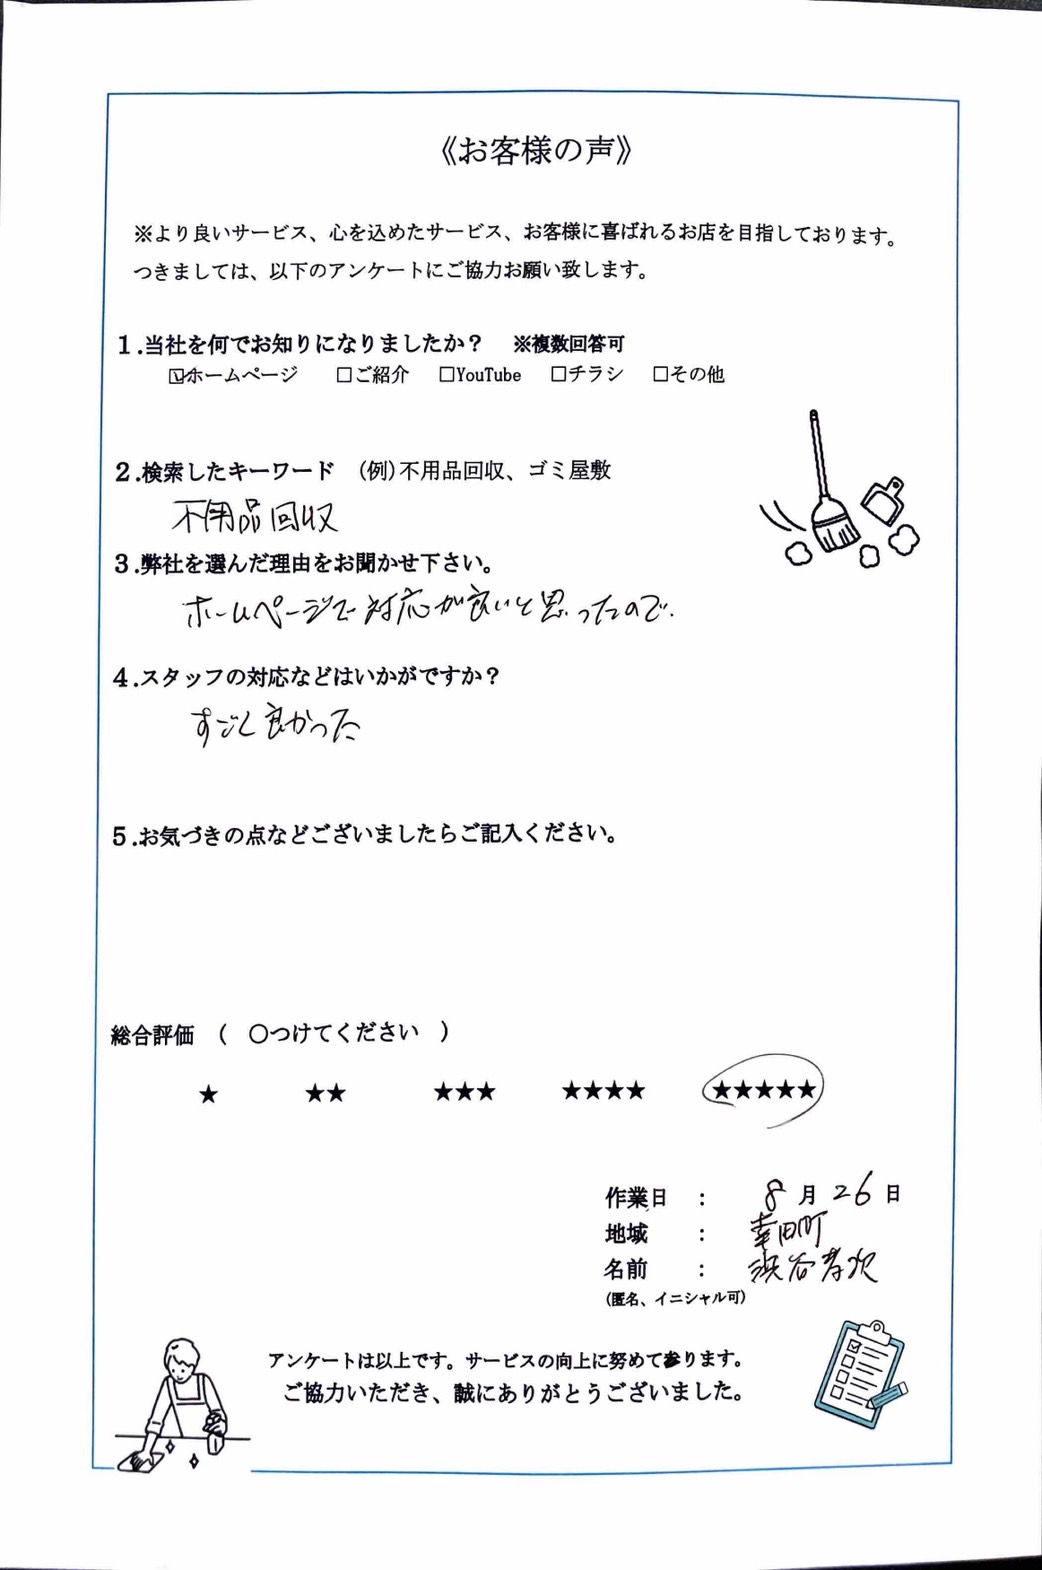 《お客様の声》
※より良いサービス、心を込めたサービス、お客様に喜ばれるお店を目指しております。
つきましては、以下のアンケートにご協力お願い致します。
1.当社を何でお知りになりましたか？ ※複数回答可
☑ホームページ □ご紹介 □YouTube □チラシ □その他
2.検索したキーワード (例)不用品回収、ゴミ屋敷
不用品回収
3.弊社を選んだ理由をお聞かせ下さい。
ホームページで対応が良いと思ったので.
4.スタッフの対応などはいかがですか？
すごく良かった
5.お気づきの点などございましたらご記入ください。
総合評価 （ 〇つけてください ）
★ ★★ ★★★ ★★★★ ★★★★★
作業日 ： 8月26日
地域 ： 幸田町
名前 ：
(匿名、イニシャル可)
アンケートは以上です。サービスの向上に努めて参ります。
ご協力いただき、誠にありがとうございました。